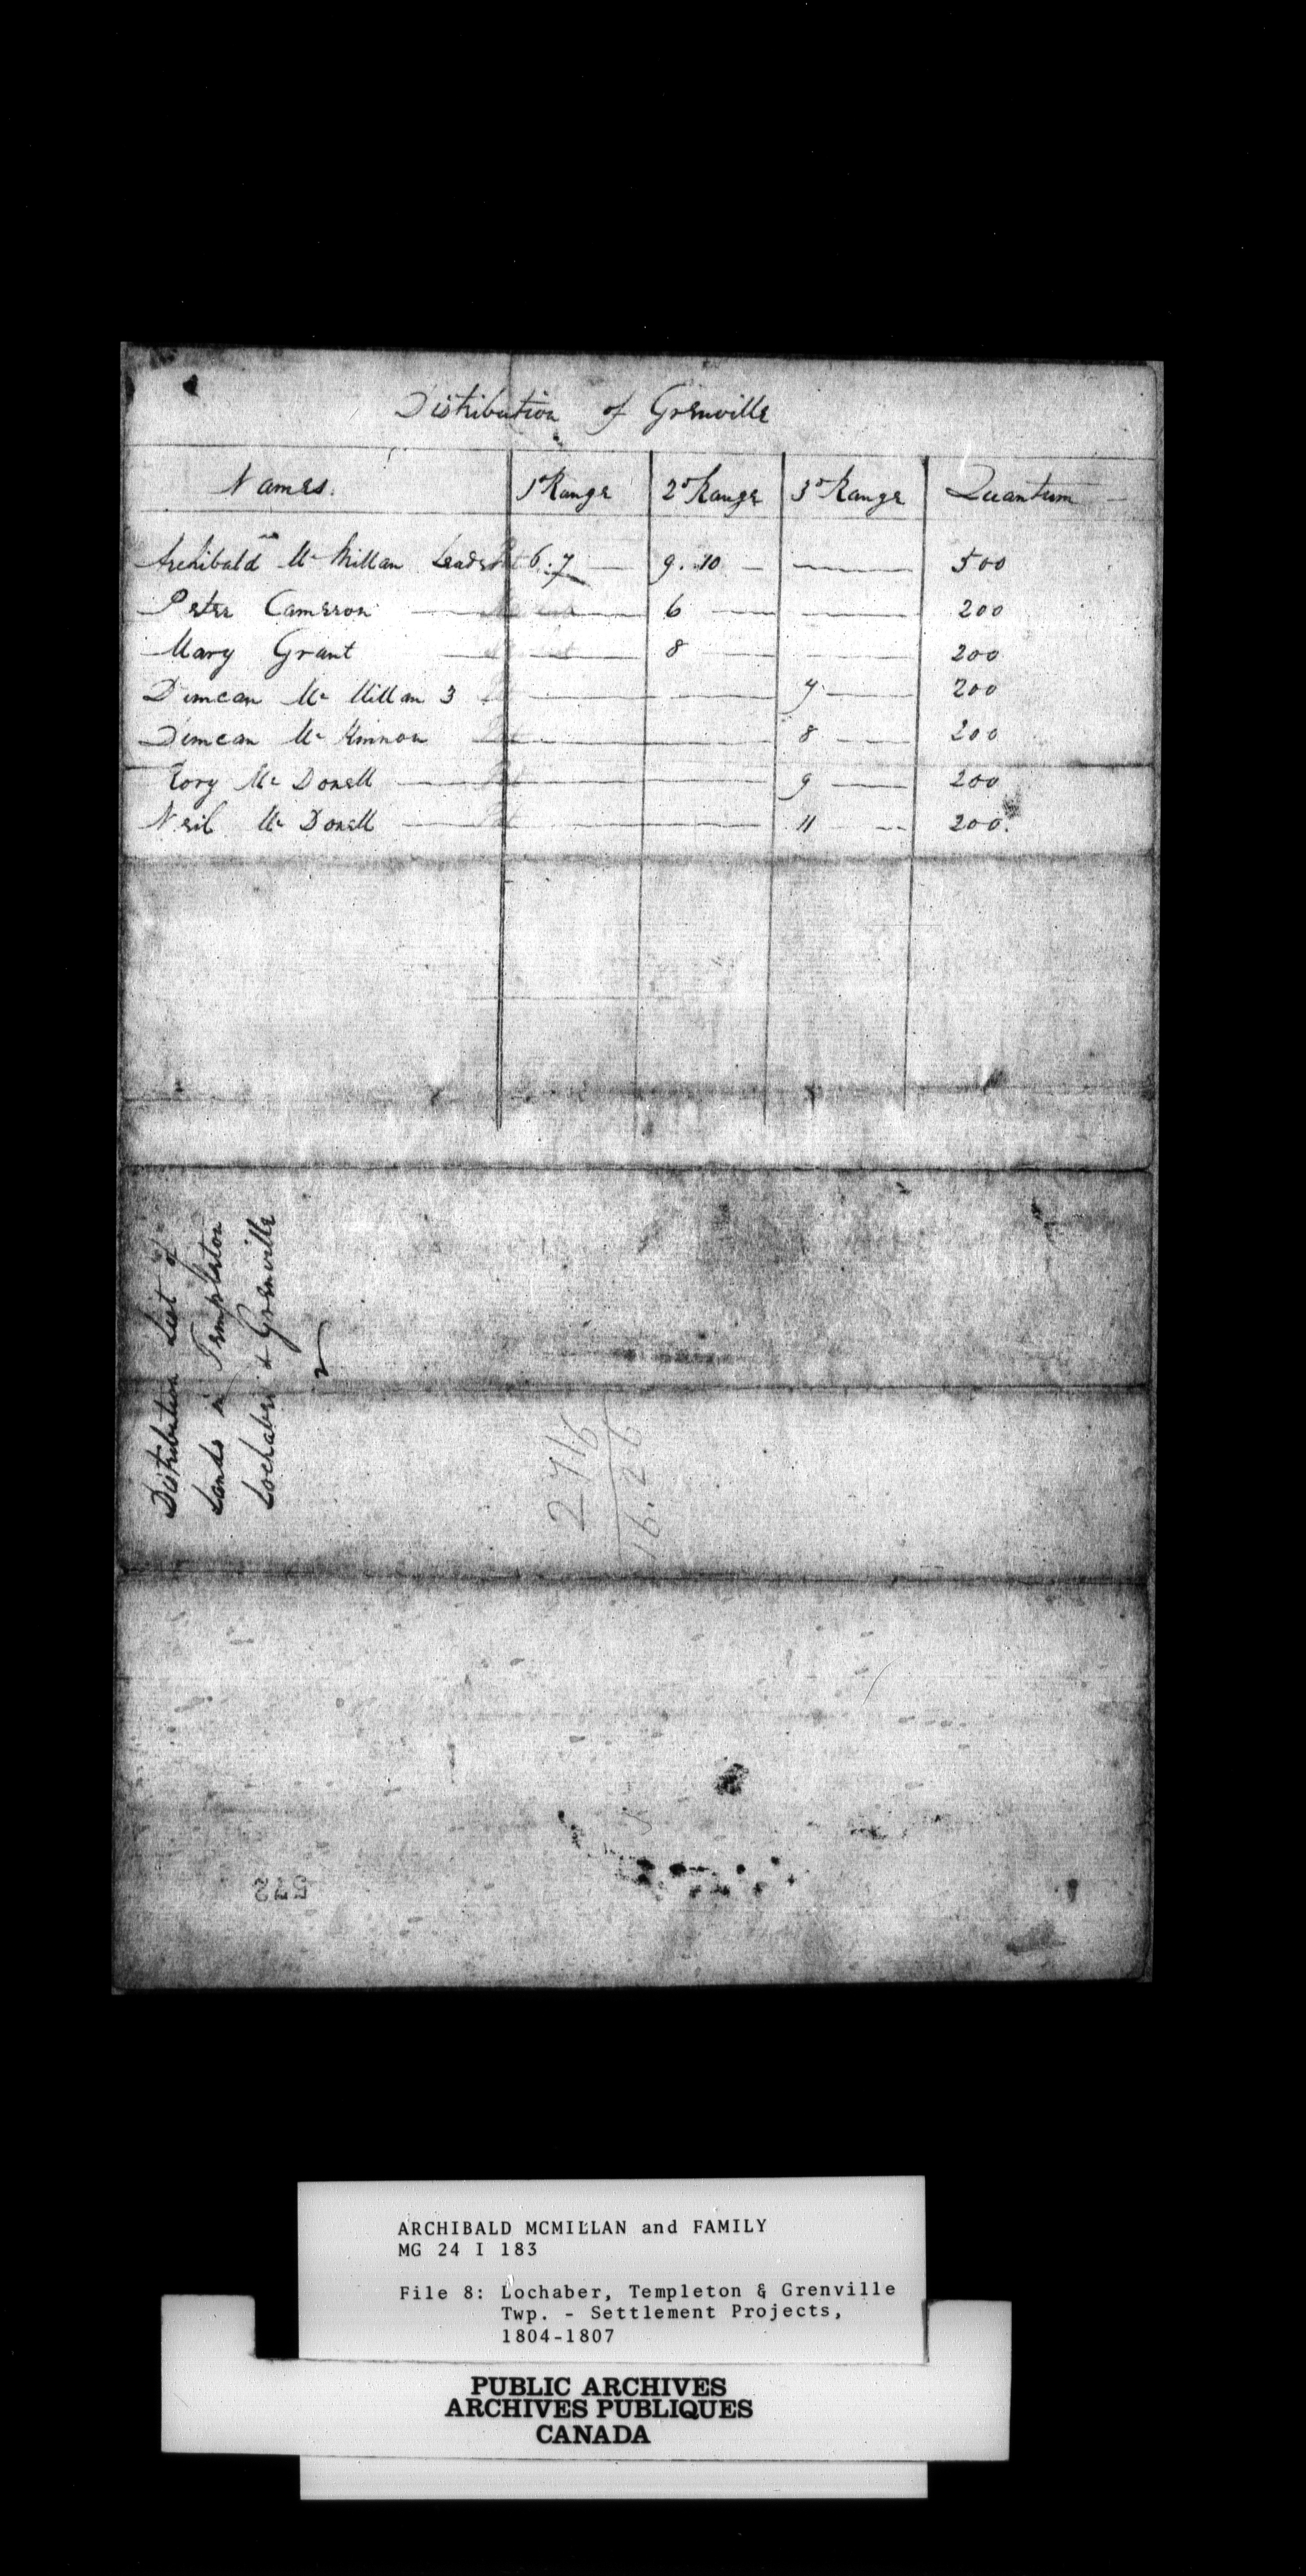 Distribution of Grenville
Names. 1st Range 2d Range 3d Range Quantum
Archibald McMillan Leader 6.7 — 9.10 — — 500
Peter Cameron — 6 — — 200
Mary Grant — 8 — — 200
Duncan McMillan 3 — — 7 — 200
Duncan McKinnon — — 8 — 200
Rory McDonell — — 9 — 200
Neil McDonell — — 11 — 200.
Distribution List of
Lands in Templeton
Lochaber & Grenville
2716
16.26
ARCHIBALD MCMILLAN and FAMILY
MG 24 I 183
File 8: Lochaber, Templeton & Grenville
Twp. - Settlement Projects,
1804-1807
PUBLIC ARCHIVES
ARCHIVES PUBLIQUES
CANADA